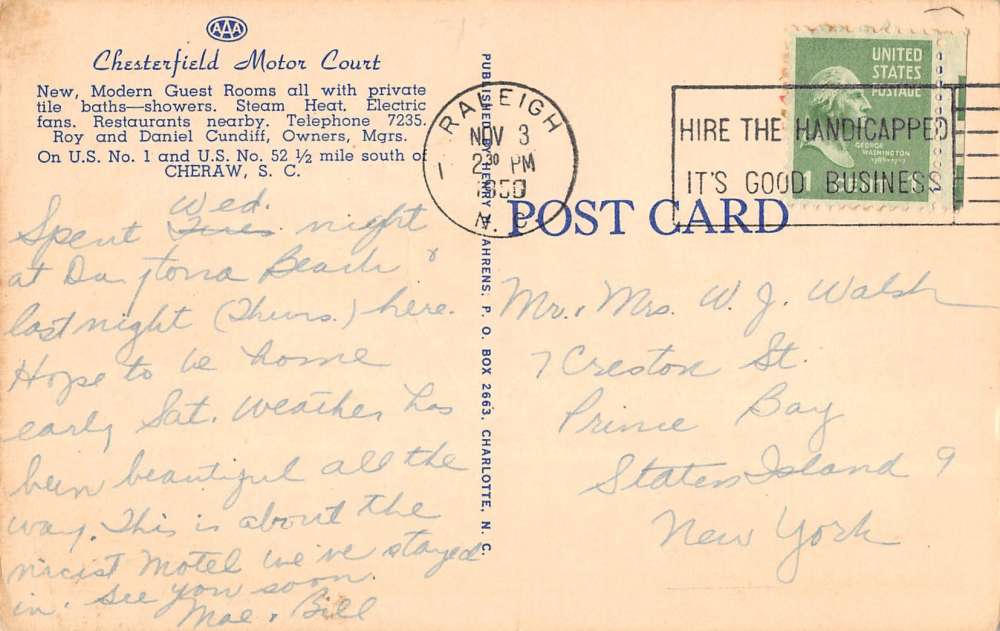 AAA
Chesterfield Motor Court
New, Modern Guest Rooms all with private
tile baths—showers. Steam Heat. Electric
fans. Restaurants nearby. Telephone 7235.
Roy and Daniel Cundiff, Owners, Mgrs.
On U.S. No. 1 and U.S. No. 52 ½ mile south of
CHERAW, S. C.
Wed.
Spent Tues. night
at Daytona Beach &
last night (Thurs.) here.
Hope to be home
early Sat. Weather has
been beautiful all the
way. This is about the
nicist Motel we've stayed
in. See you soon.
Mae & Bill
PUBLISHED BY HENRY AHRENS, P. O. BOX 2663, CHARLOTTE, N. C.
RALEIGH
NOV 3
2 30 PM
1
1950
N. C.
HIRE THE HANDICAPPED
IT'S GOOD BUSINESS
UNITED
STATES
POSTAGE
GEORGE
WASHINGTON
1
POST CARD
Mr. & Mrs. W. J. Walsh
7 Creston St.
Prince Bay
Staten Island 9
New York